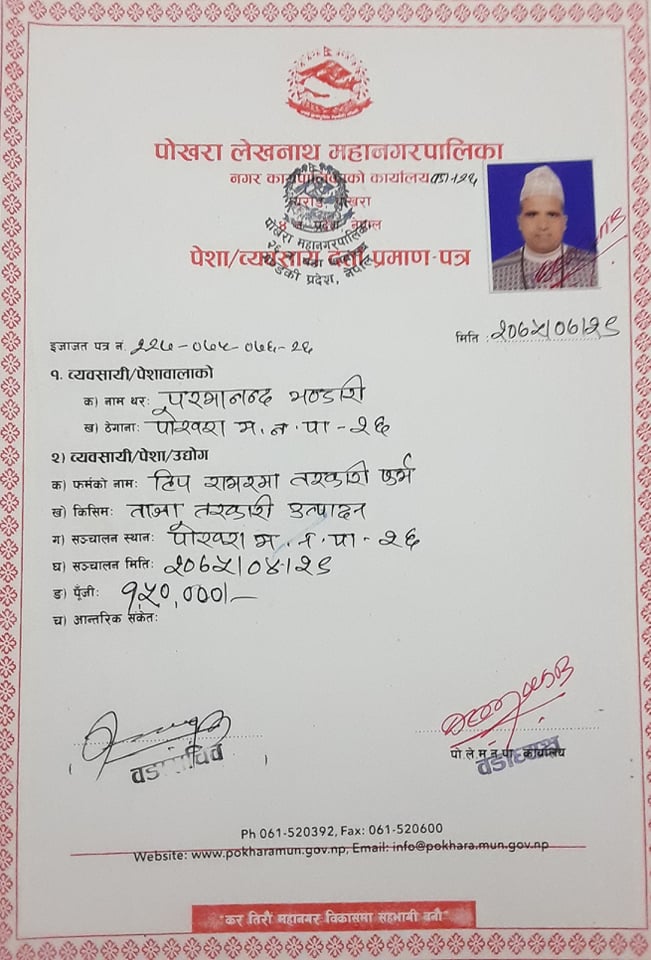 पोखरा लेखनाथ महानगरपालिका
नगर कार्यपालिकाको कार्यालय
पोखरा
प्रदेश, नेपाल
पोखरा महानगरपालिका
गण्डकी प्रदेश, नेपाल
पेशा/व्यवसाय दर्ता प्रमाण-पत्र
मिति :
इजाजत पत्र नं. २२७-०७५-०७६-२६
१. व्यवसायी/पेशावालाको
क) नाम थरः प्रमानन्द भण्डारी
ख) ठेगानाः पोखरा म. न. पा - २६
२) व्यवसायी/पेशा/उद्योग
क) फर्मको नामः तरकारी फर्म
ख) किसिमः ताजा तरकारी उत्पादन
ग) सञ्चालन स्थानः पोखरा म. न. पा - २६
घ) सञ्चालन मितिः
ङ) पूँजीः १,५०,०००।-
च) आन्तरिक संकेतः
वडा सचिव
पो.ले.म.न.पा. कार्यालय
वडाध्यक्ष
Ph 061-520392, Fax: 061-520600
Website: www.pokharamun.gov.np, Email: info@pokhara.mun.gov.np
"कर तिरौं महानगर विकासमा सहभागी बनौं"